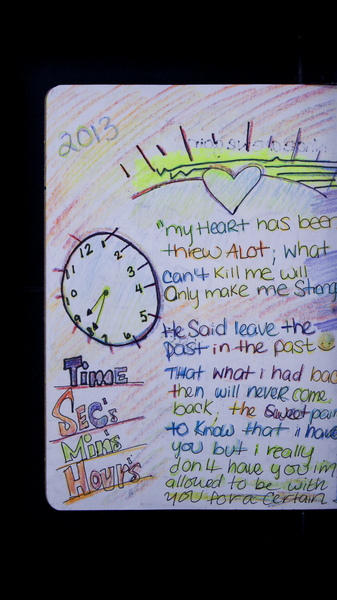 2013
"my HEART has been
threw ALot; what
can't Kill me will
Only make me Strong
He Said leave the
past in the past
THAT what i had bac
then will never come
back, the Sweet pain
to Know that i have
you but i really
don4 have you im
allowed to be with
YOU for a certain
12
1
2
3
4
5
6
7
8
9
10
11
TIME
SEC's
MiNs
HOURs